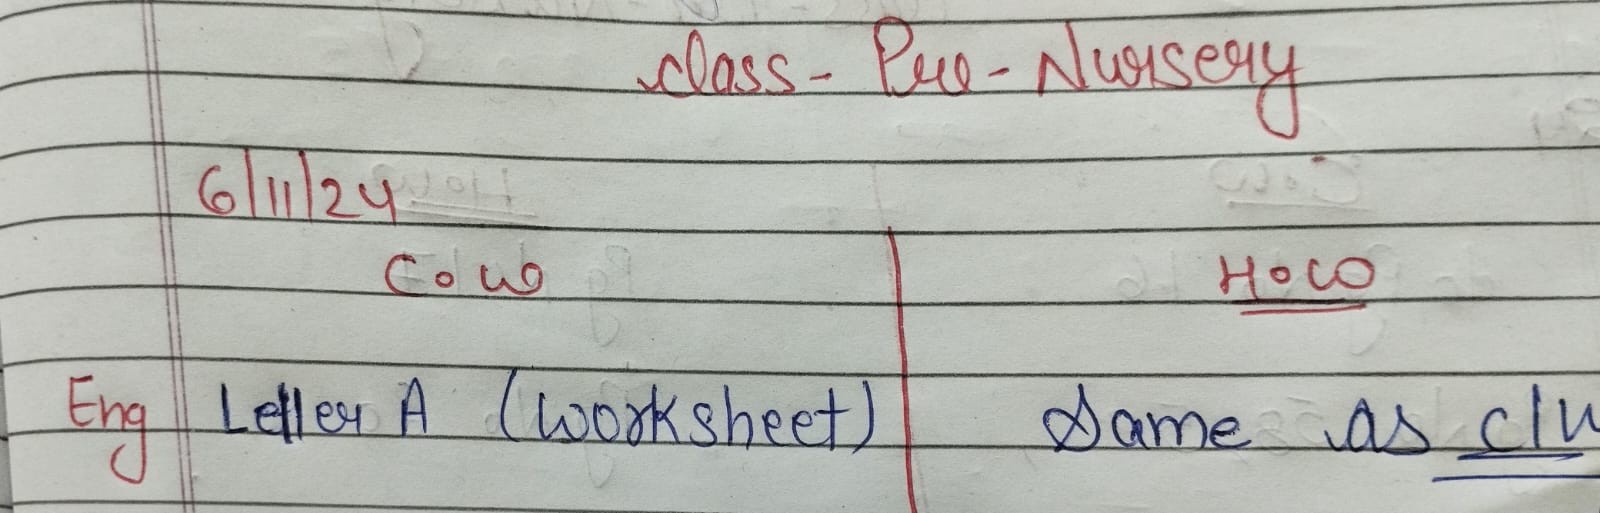 Class - Pre - Nursery
6/11/24
C.w H.w
Eng Letter A (worksheet) Same as c/w